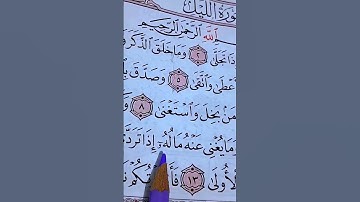 سورة الليل
الله الرحمن الرحيم
ذَا تَجَلَّىٰ ٢ وَمَا خَلَقَ الذَّكَرَ وَ
عْطَىٰ وَاتَّقَىٰ ٥ وَصَدَّقَ بِ
مَنۢ بَخِلَ وَاسْتَغْنَىٰ ٨ وَ
مَا يُغْنِي عَنْهُ مَالُهُۥٓ إِذَا تَرَدَّ
لْأُولَىٰ ١٣ فَأَ